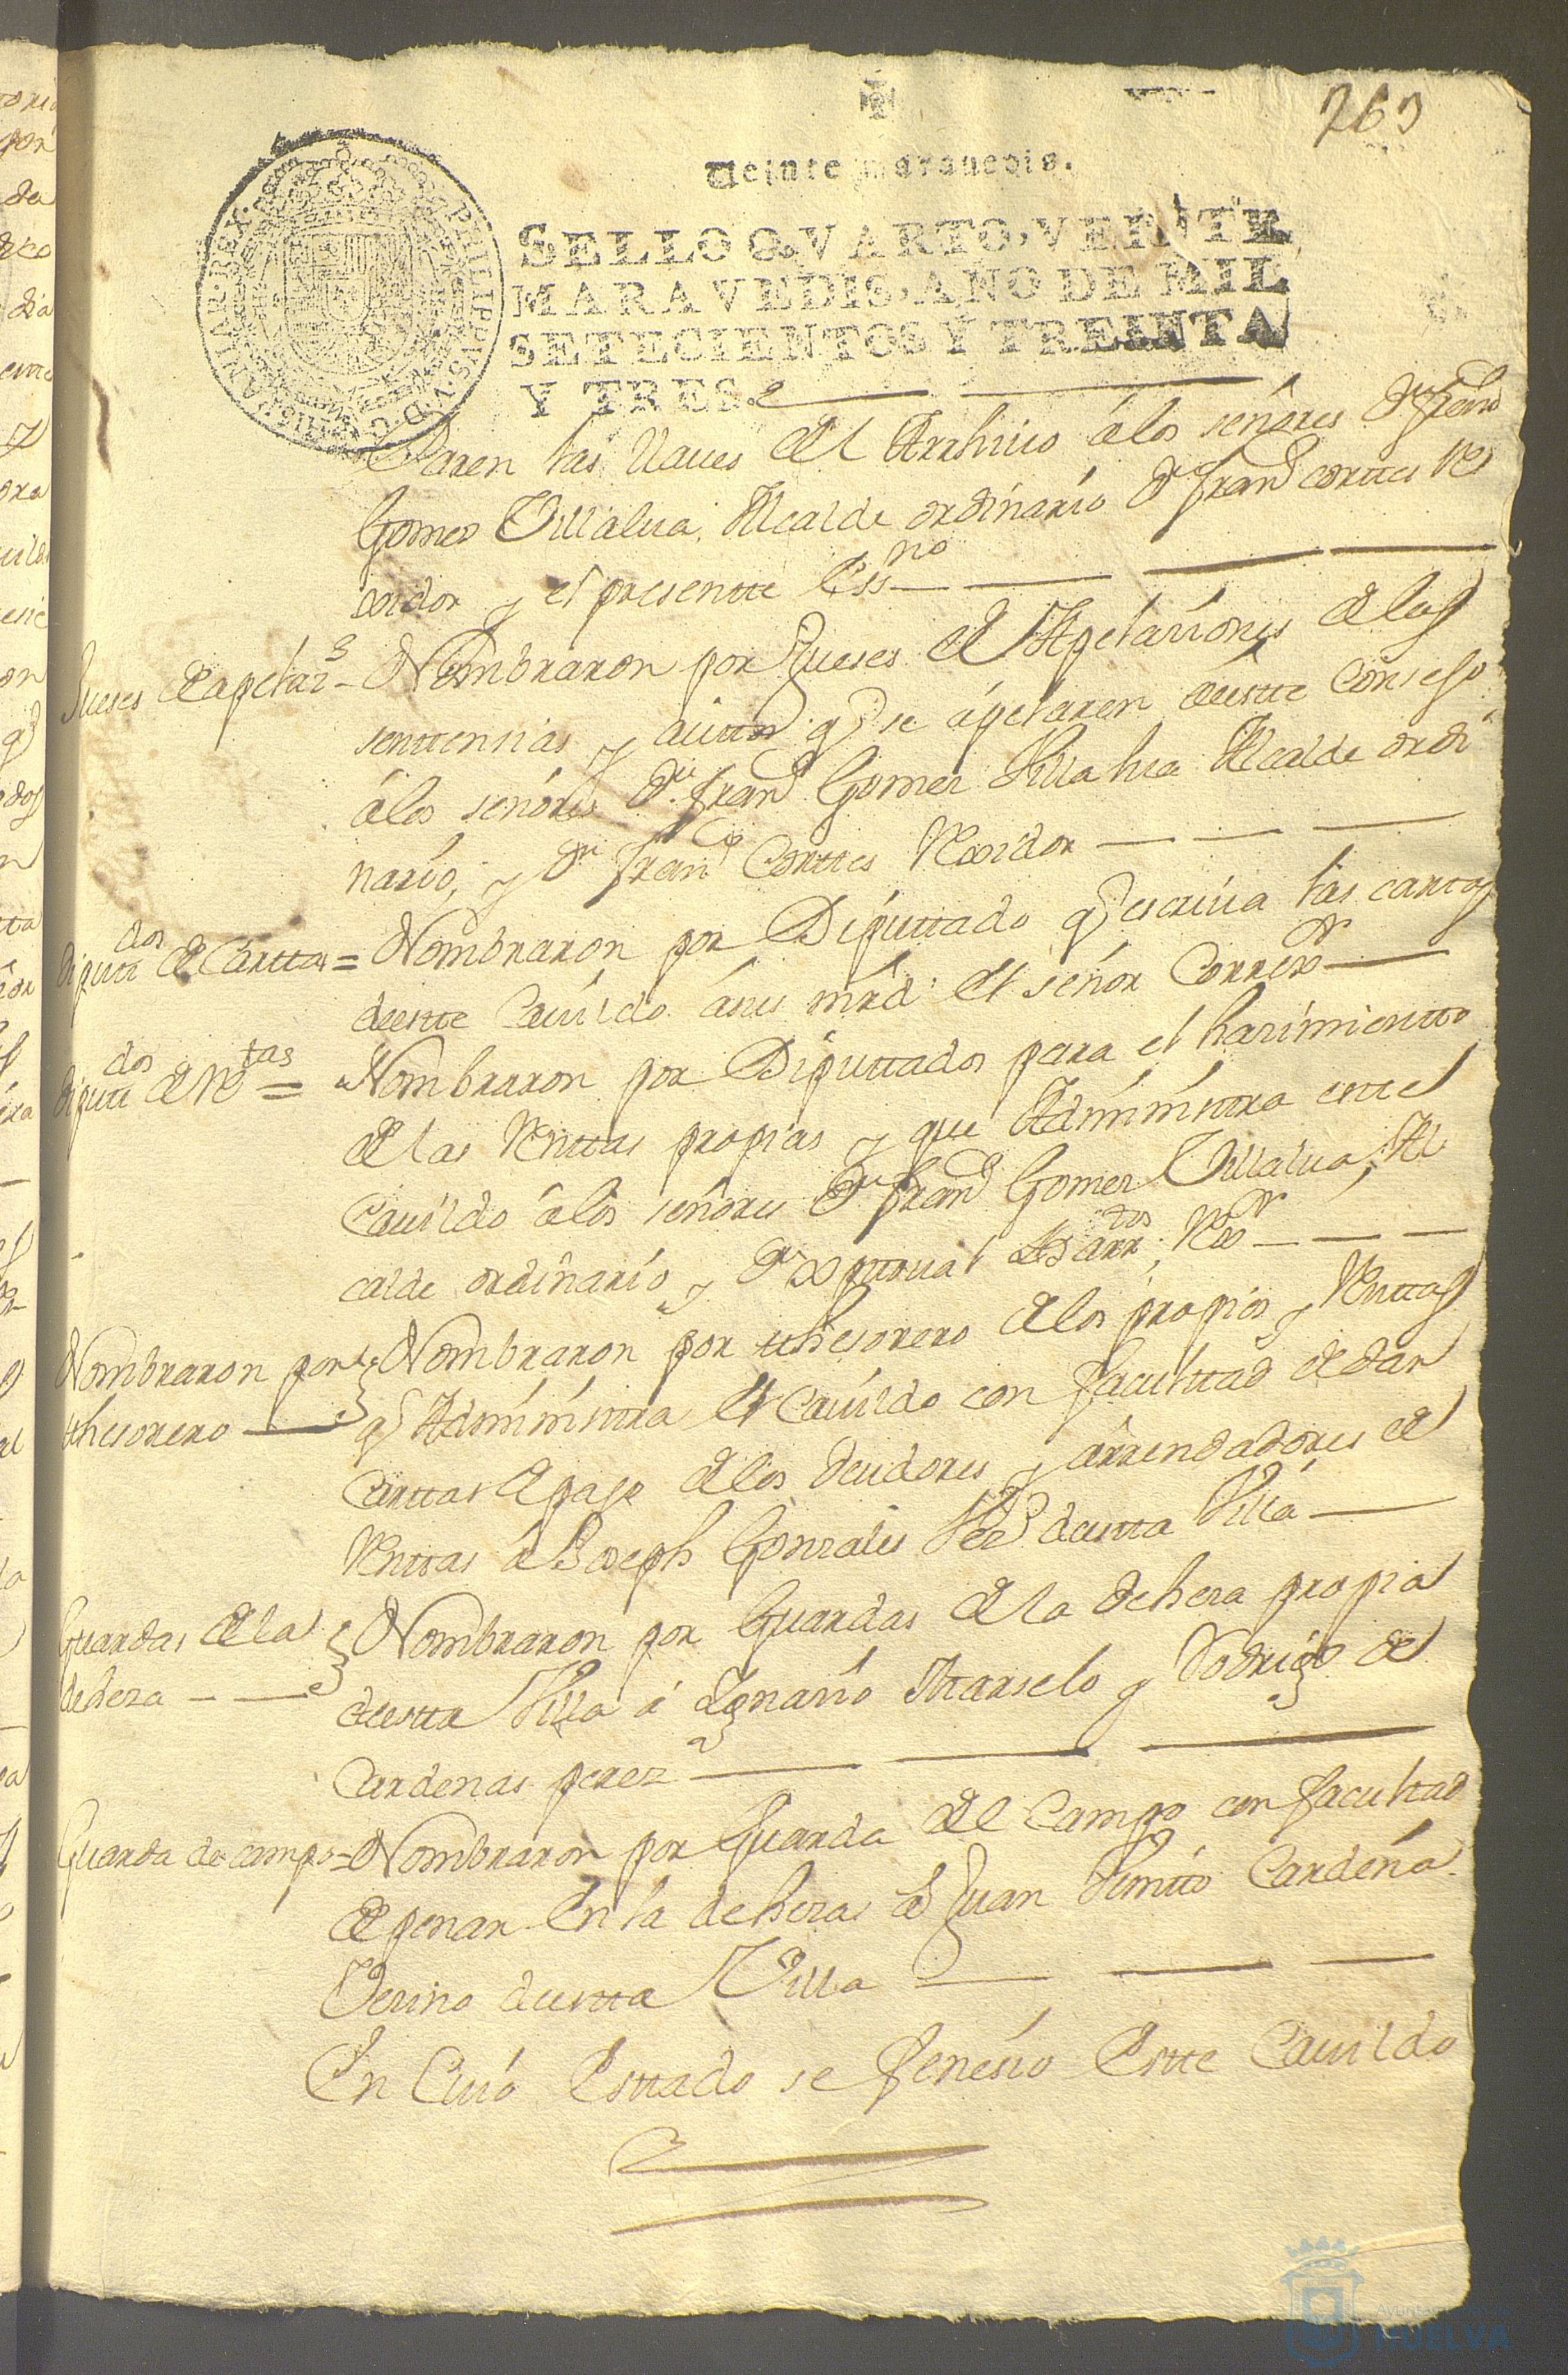 263
Veinte maravedis.
SELLO QVARTO, VEINTE
MARAVEDIS, AÑO DE MIL
SETECIENTOS Y TREINTA
Y TRES.
PHILIPPUS V D G HISPANIAR REX
paren las llaues del Archiuo á los señores Dn. franco
Gomez Villalua, Alcalde ordinario Dn franco corttes Re
xidor y el presentte Essno
Jueses de apelazs - Nombraron por Jueses de Apelaciones de las
senttensias y auttos q se ápelaren deestte Consejo
á los señores Dn. franco Gomez Villalua Alcalde ordi
nario, y Dn franco Corttes Rexidor
diputtdos de Carttas = Nombraron por Diputtado q escriua las carttas
deestte Cauildo á su mrd. el señor Correxor
diputtdos de Rtas = Nombraron por Diputtados para el hasimientto
de las Renttas propias y que Administra estte
Cauildo á los señores Dn franco Gomez Villalua, Al
calde ordinario y Dn Xpttoual Barrtos, Rexr
Nombraron por tthesorero - Nombraron por tthesorero de los propios y Renttas
q Administra el Cauildo con faculttad de dar
Carttas de pago de los deudores y arrendadores de
Renttas á Joseph Gonzales Vezo deestta Villa
Guardas de la dehesa - Nombraron por Guardas de la dehesa propia
deestta Villa á Ignasio Marselo y Rodrigo de
Cardenas perez
Guarda de campo = Nombraron por Guarda del Campo con facultad
de penar En la dehesas á Juan Benitto Cardeña
Vesino deestta Villa
En Cuio Esttado se fenesio Estte Cauildo
Ayuntamiento de
HUELVA